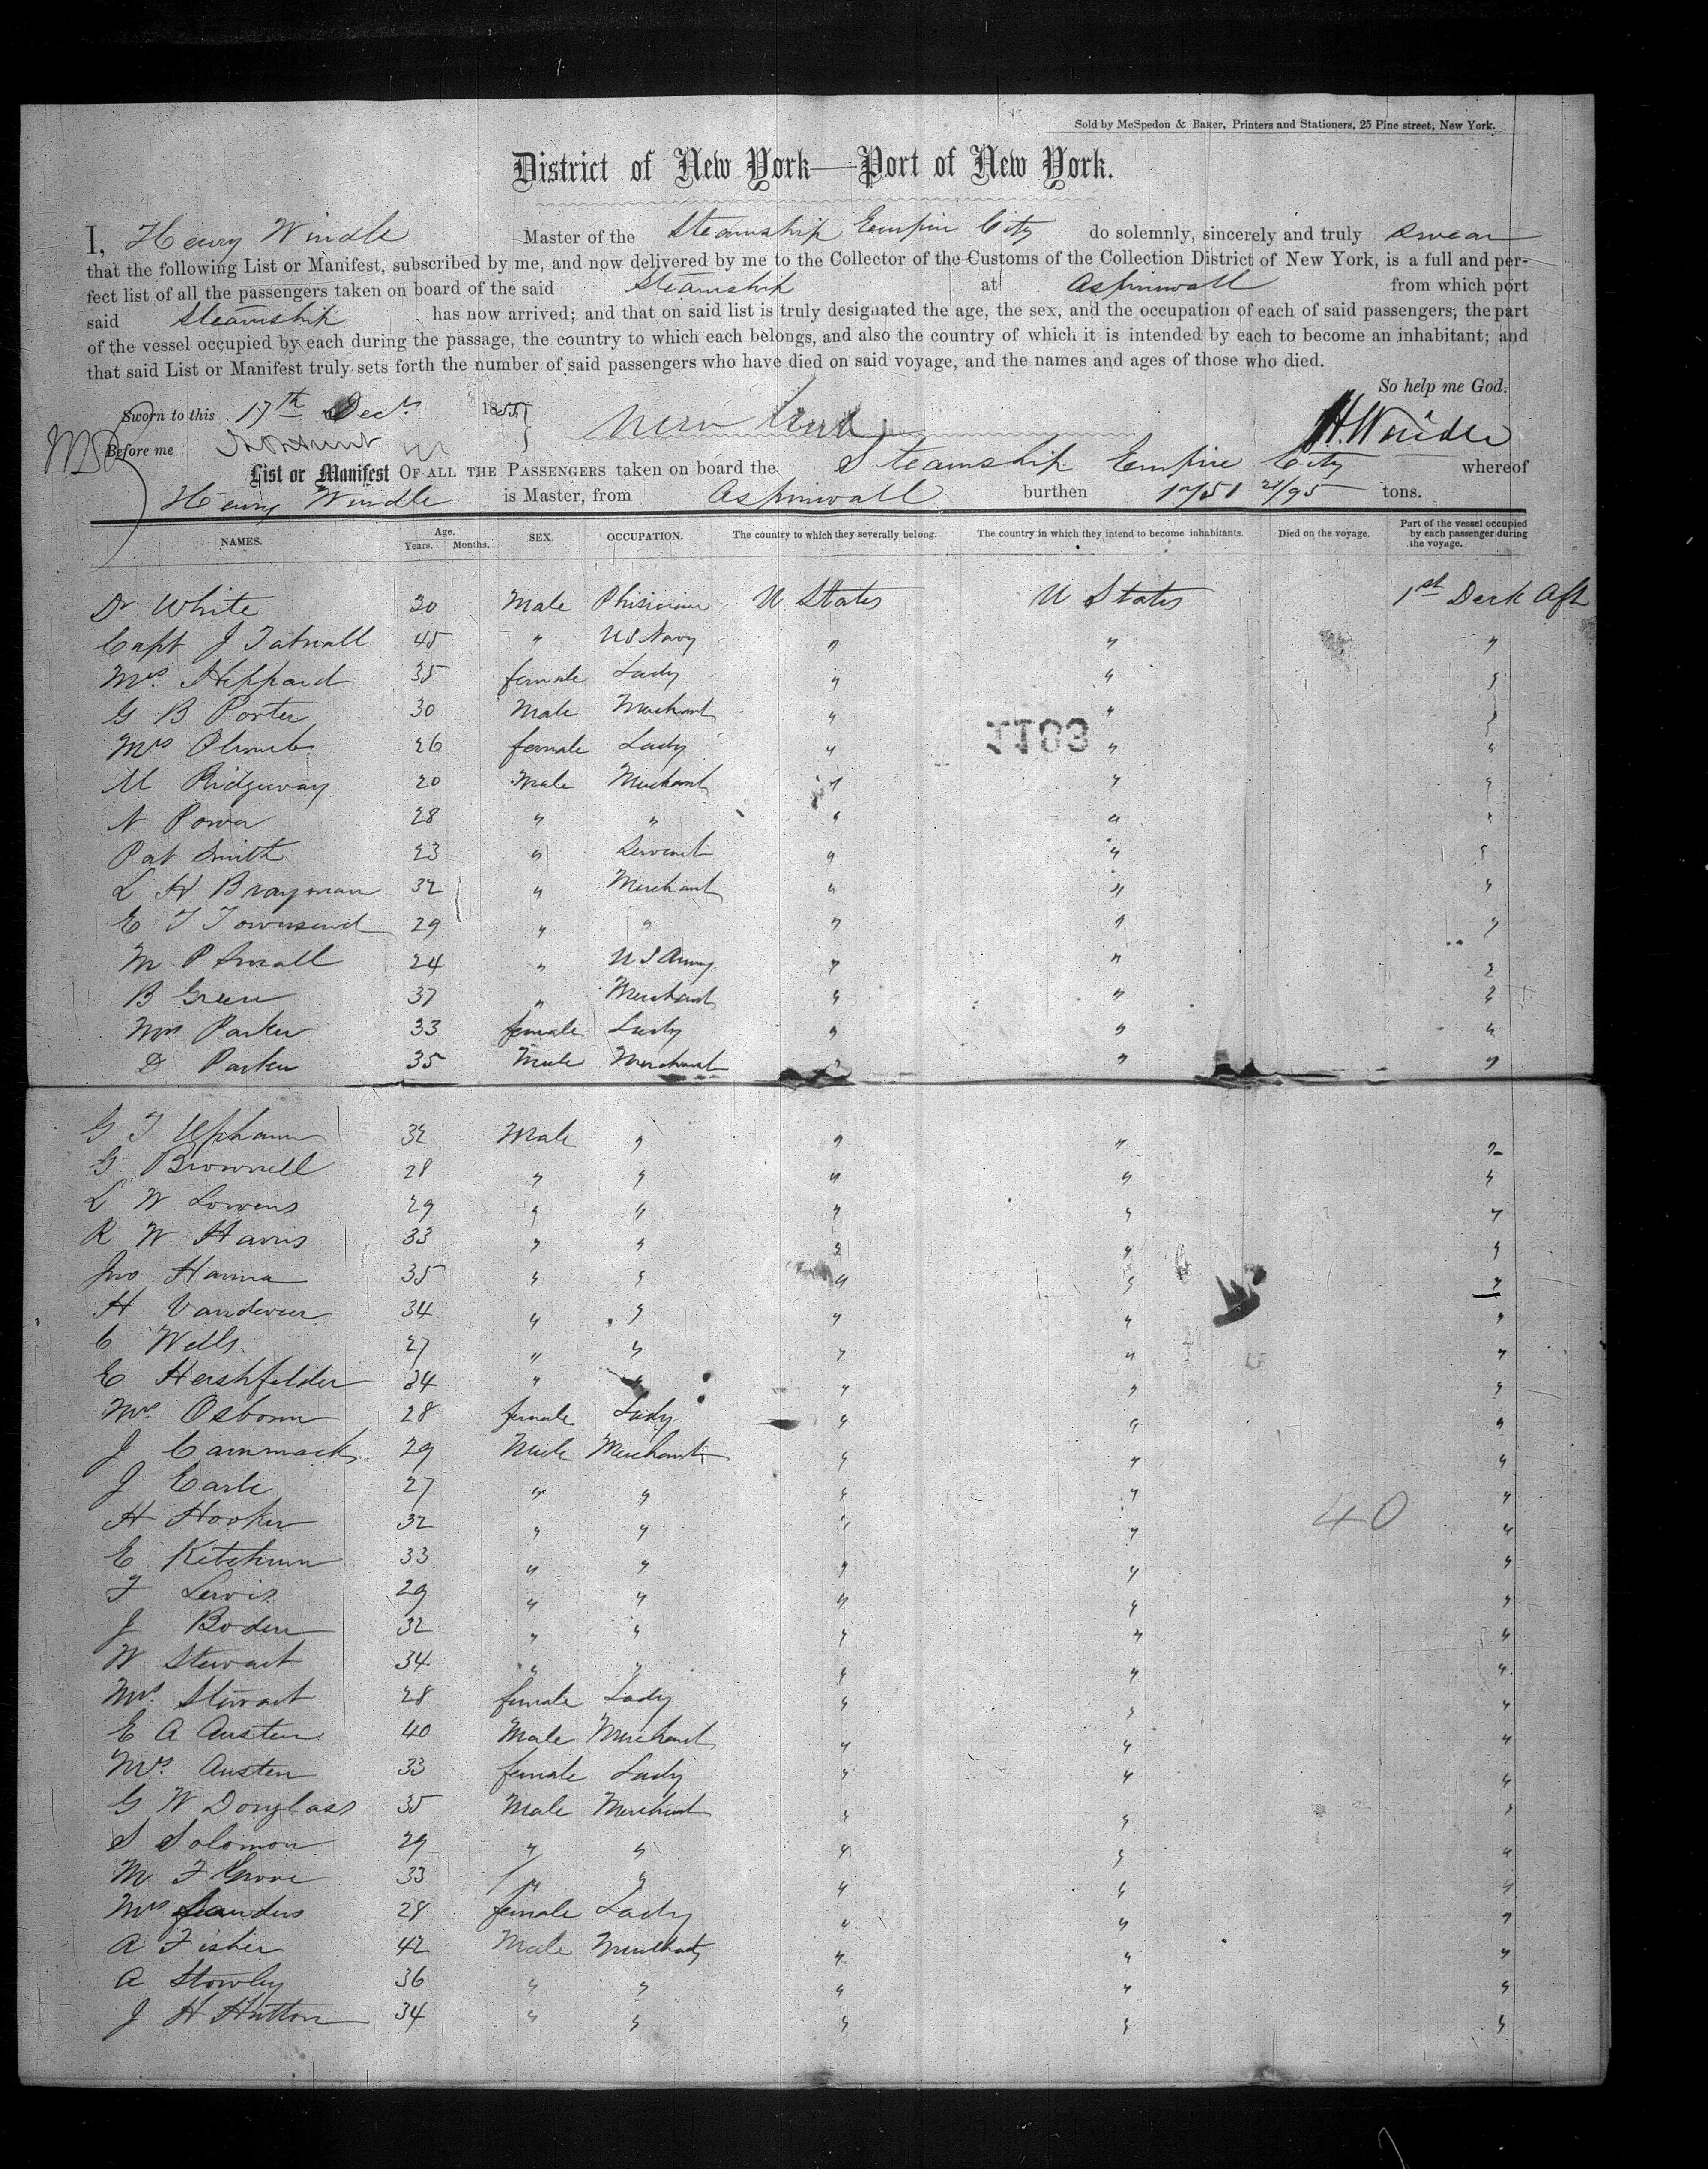 Sold by McSpedon & Baker, Printers and Stationers, 25 Pine street, New York.
District of New York—Port of New York.
I, Henry Windle Master of the Steamship Empire City do solemnly, sincerely and truly swear
that the following List or Manifest, subscribed by me, and now delivered by me to the Collector of the Customs of the Collection District of New York, is a full and per-
fect list of all the passengers taken on board of the said Steamship at Aspinwall from which port
said Steamship has now arrived; and that on said list is truly designated the age, the sex, and the occupation of each of said passengers, the part
of the vessel occupied by each during the passage, the country to which each belongs, and also the country of which it is intended by each to become an inhabitant; and
that said List or Manifest truly sets forth the number of said passengers who have died on said voyage, and the names and ages of those who died.
So help me God.
Sworn to this 17th Decr 1855 New York H. Windle
Before me
List or Manifest OF ALL THE PASSENGERS taken on board the Steamship Empire City whereof
Henry Windle is Master, from Aspinwall burthen 1751 21/95 tons.
NAMES. Age. Years. Months. SEX. OCCUPATION. The country to which they severally belong. The country in which they intend to become inhabitants. Died on the voyage. Part of the vessel occupied by each passenger during the voyage.
Dr White 30 Male Phisician U. States U States 1st Deck Aft
Capt J Tatnall 45 " US Navy " " "
Mrs Heppard 35 female Lady " " "
G B Porter 30 Male Merchant " " "
Mrs 26 female Lady " " "
1103
M Ridgeway 20 Male Merchant " " "
N Power 28 " " " " "
Pat Smith 23 " Servant " " "
L H Brayman 32 " Merchant " " "
E T Townsend 29 " " " " "
M P Small 24 " U S Army " " "
B Green 37 " Merchant " " "
Mrs Parker 33 female Lady " " "
D Parker 35 Male Merchant " " "
G T Upham 32 Male " " " "
G Brownell 28 " " " " "
L W Lowens 29 " " " " "
R W Harris 33 " " " " "
Jno Hanna 35 " " " " "
H Vandeveer 34 " " " " "
C Wells 27 " " " " "
E Hershfelder 34 " " " " "
Mrs Osborn 28 female Lady " " "
J Cammack 29 Male Merchant " " "
J Earle 27 " " " " "
H Hooker 32 " " " 40 "
E Ketchum 33 " " " " "
F Lewis 29 " " " " "
J Boden 32 " " " " "
W Stewart 34 " " " " "
Mrs Stewart 28 female Lady " " "
E A Austen 40 Male Merchant " " "
Mrs Austen 33 female Lady " " "
G W Douglass 35 Male Merchant " " "
S Solomon 29 " " " " "
M F Grove 33 " " " " "
Mrs Sanders 28 female Lady " " "
A Fisher 42 Male Merchant " " "
A Stowley 36 " " " " "
J H Hutton 34 " " " " "